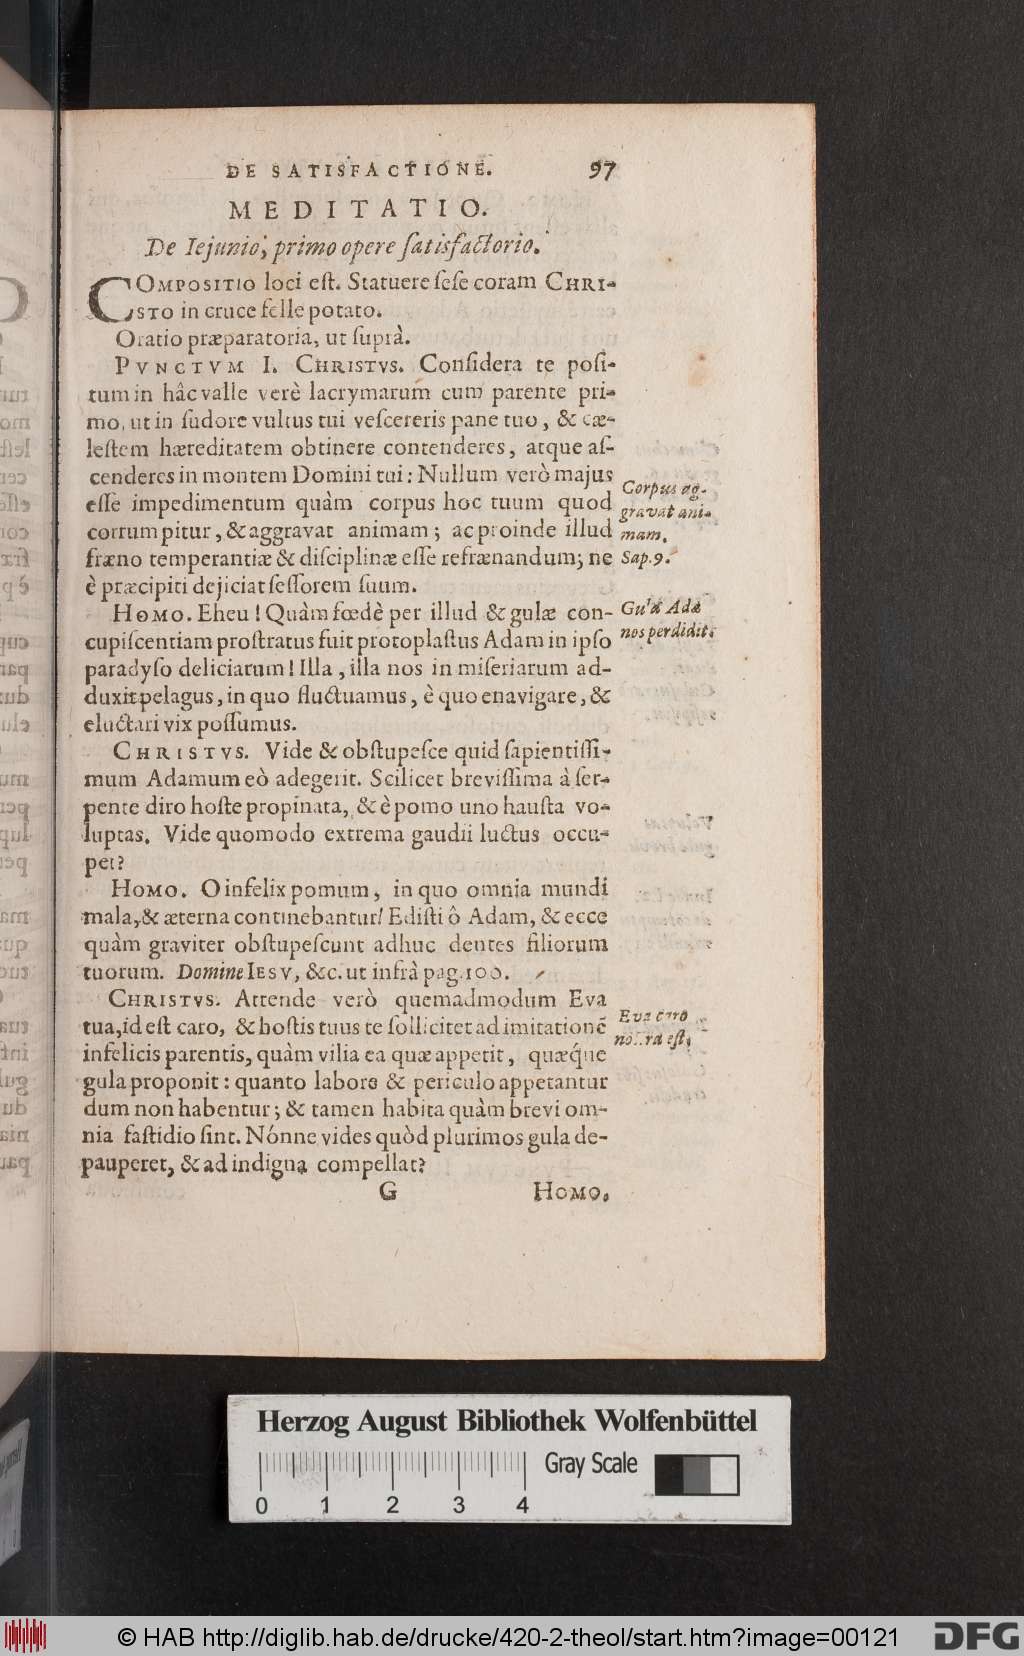 DE SATISFACTIONE. 97
MEDITATIO.
De Iejunio, primo opere ſatisfactorio.
COMPOSITIO loci eſt. Statuere ſeſe coram CHRI-
STO in cruce felle potato.
Oratio præparatoria, ut ſuprà.
PVNCTVM I. CHRISTVS. Conſidera te poſi-
tum in hâc valle verè lacrymarum cum parente pri-
mo, ut in ſudore vultus tui veſcereris pane tuo, & cæ-
leſtem hæreditatem obtinere contenderes, atque aſ-
cenderes in montem Domini tui: Nullum verò majus
eſſe impedimentum quàm corpus hoc tuum quod
corrumpitur, & aggravat animam; ac proinde illud
fræno temperantiæ & diſciplinæ eſſe refrænandum; ne
è præcipiti dejiciat ſeſſorem ſuum.
Corpus ag-
gravat ani-
mam.
Sap. 9.
HOMO. Eheu! Quàm fœdè per illud & gulæ con-
cupiſcentiam proſtratus fuit protoplaſtus Adam in ipſo
paradyſo deliciarum! Illa, illa nos in miſeriarum ad-
duxit pelagus, in quo fluctuamus, è quo enavigare, &
eluctari vix poſſumus.
Gula Adæ
nos perdidit.
CHRISTVS. Vide & obſtupeſce quid ſapientiſſi-
mum Adamum eò adegerit. Scilicet breviſſima à ſer-
pente diro hoſte propinata, & è pomo uno hauſta vo-
luptas. Vide quomodo extrema gaudii luctus occu-
pet?
HOMO. O infelix pomum, in quo omnia mundi
mala, & æterna continebantur! Ediſti ô Adam, & ecce
quàm graviter obſtupeſcunt adhuc dentes filiorum
tuorum. Domine IESV, &c. ut infrà pag. 100.
CHRISTVS. Attende verò quemadmodum Eva
tua, id eſt caro, & hoſtis tuus te ſollicitet ad imitationē
infelicis parentis, quàm vilia ea quæ appetit, quæq́ue
gula proponit: quanto labore & periculo appetantur
dum non habentur; & tamen habita quàm brevi om-
nia faſtidio ſint. Nónne vides quòd plurimos gula de-
pauperet, & ad indigna compellat?
Eva caro
noſtra eſt.
G HOMO.
Herzog August Bibliothek Wolfenbüttel
Gray Scale
0 1 2 3 4
© HAB http://diglib.hab.de/drucke/420-2-theol/start.htm?image=00121
DFG